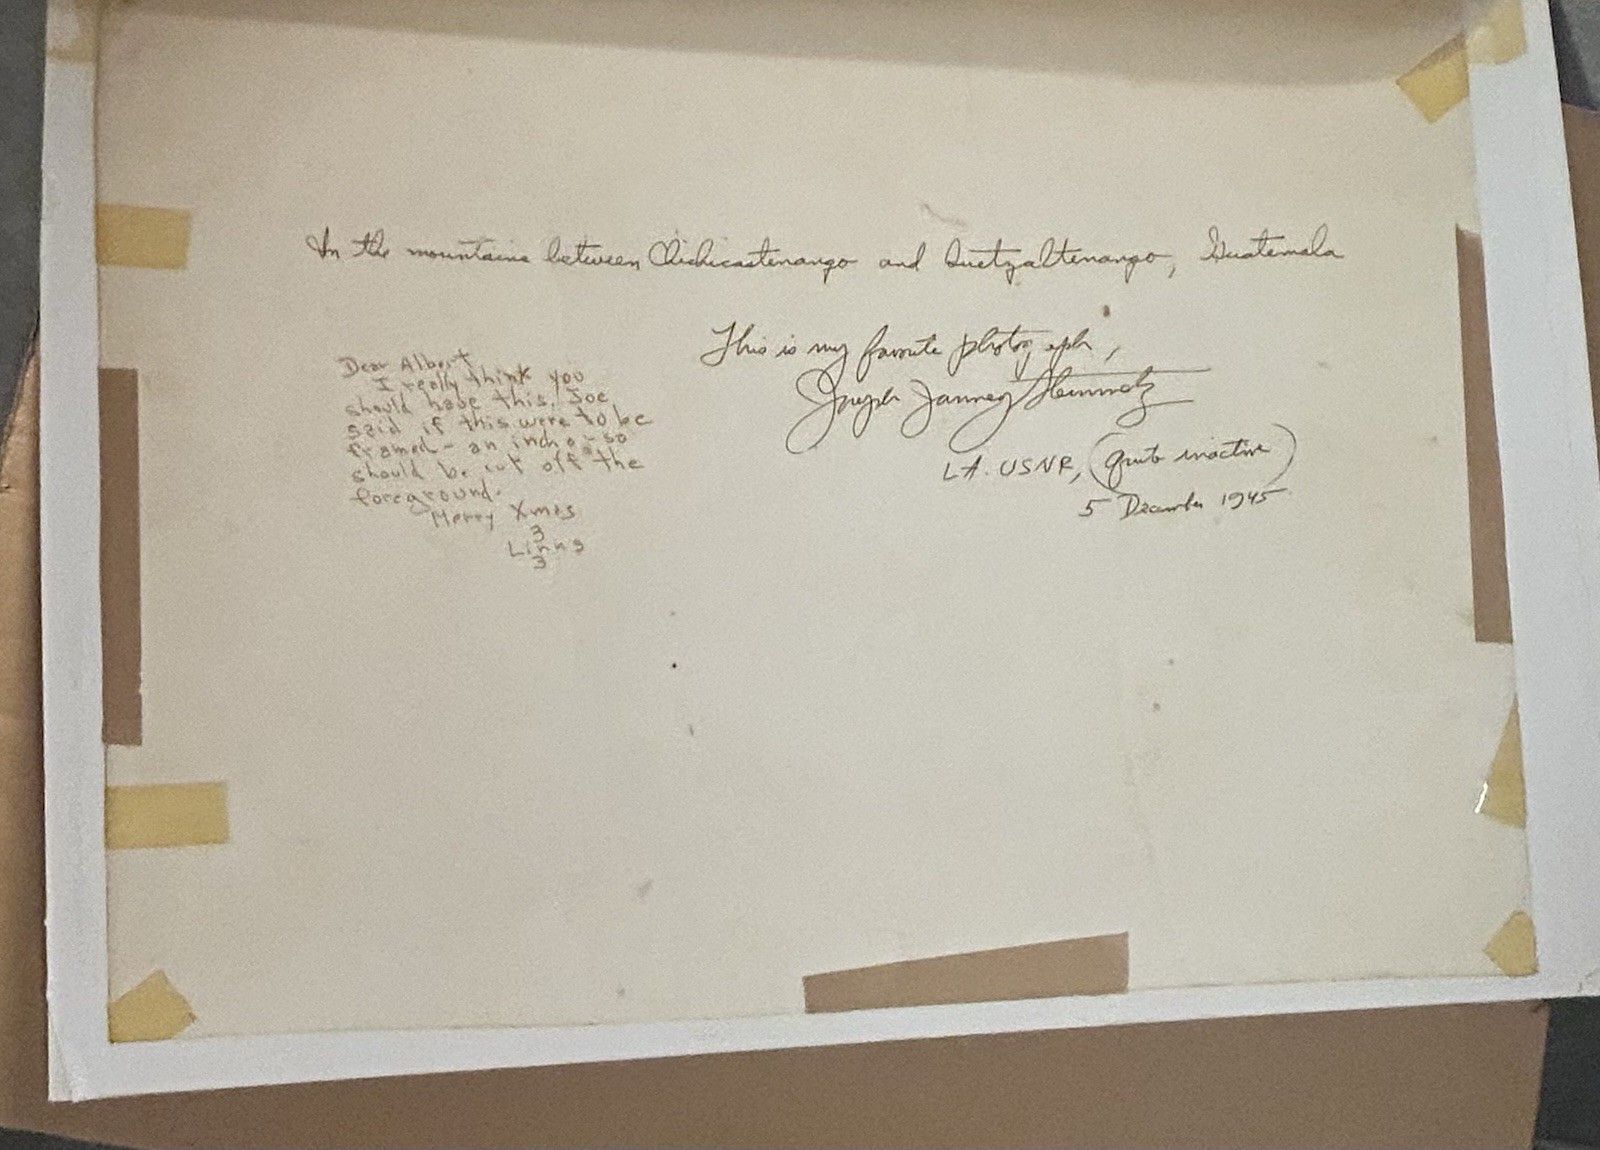 In the mountains between Chichicastenango and Quetzaltenango, Guatemala
This is my favorite photograph,
Joseph Janney Steinmetz
Lt. USNR, (quite inactive)
5 December 1945
Dear Albert
I really think you
should have this. Joe
said if this were to be
framed - an inch or so
should be cut off the
foreground.
Merry Xmas
3
Linns
3